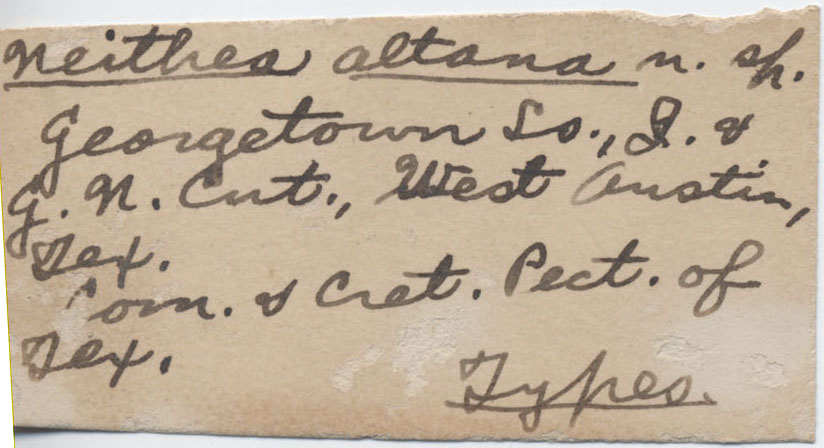 Neithea altana n. sp.
Georgetown Ls., I. &
G. N. Cut., West Austin,
Tex.
Com. & Cret. Pect. of
Tex.
Types.